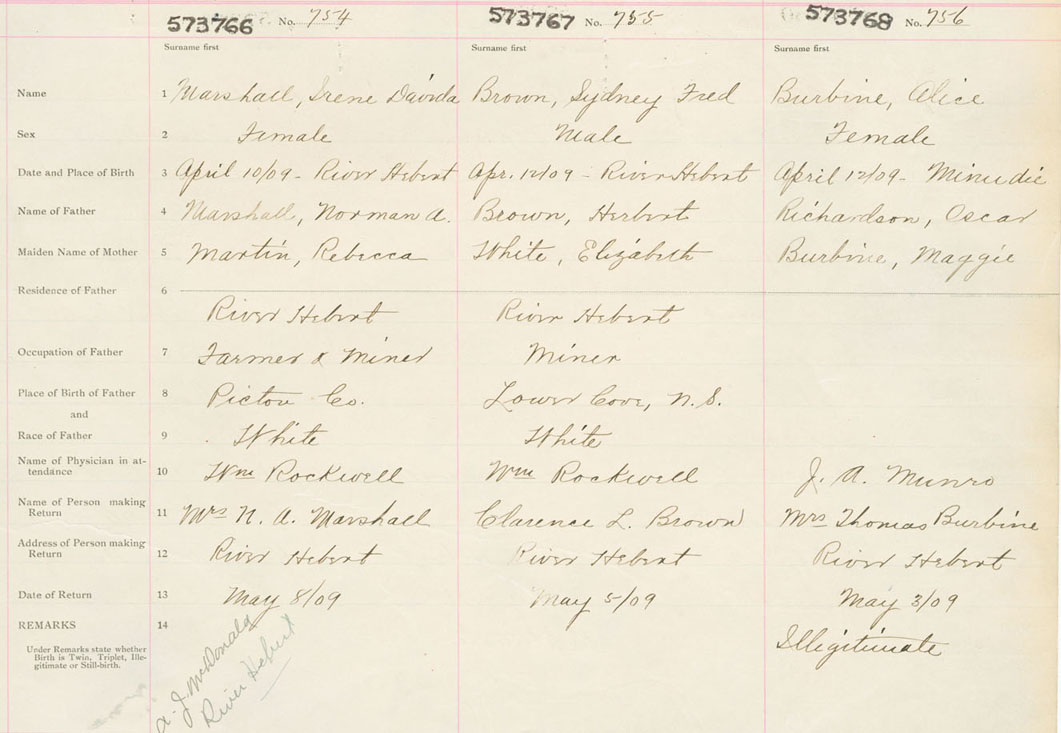 573766 No. 754 573767 No. 755 573768 No. 756
Surname first Surname first Surname first
Name 1 Marshall, Irene Davida Brown, Sydney Fred Burbine, Alice
Sex 2 Female Male Female
Date and Place of Birth 3 April 10/09 - River Hebert Apr. 12/09 - River Hebert April 12/09 - Minudie
Name of Father 4 Marshall, Norman A. Brown, Herbert Richardson, Oscar
Maiden Name of Mother 5 Martin, Rebecca White, Elizabeth Burbine, Maggie
Residence of Father 6
River Hebert River Hebert
Occupation of Father 7 Farmer & Miner Miner
Place of Birth of Father 8 Pictou Co. Lower Cove, N.S.
and
Race of Father 9 White White
Name of Physician in at-
tendance 10 Wm Rockwell Wm Rockwell J. A. Munro
Name of Person making
Return 11 Mrs N. A. Marshall Clarence L. Brown Mrs Thomas Burbine
Address of Person making
Return 12 River Hebert River Hebert River Hebert
Date of Return 13 May 8/09 May 5/09 May 3/09
REMARKS 14
Illegitimate
Under Remarks state whether
Birth is Twin, Triplet, Ille-
gitimate or Still-birth.
A. J. McDonald
River Hebert